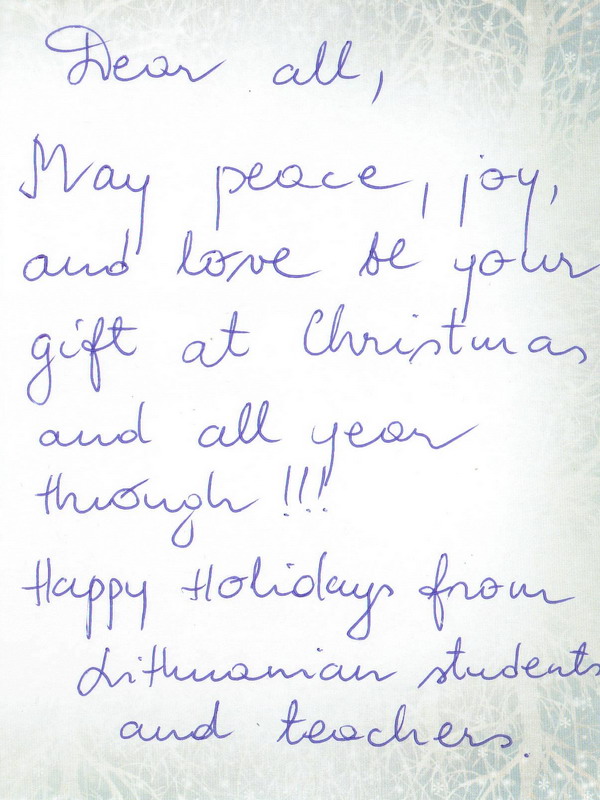 Dear all,
May peace, joy,
and love be your
gift at Christmas
and all year
through !!!
Happy Holidays from
Lithuanian students
and teachers.